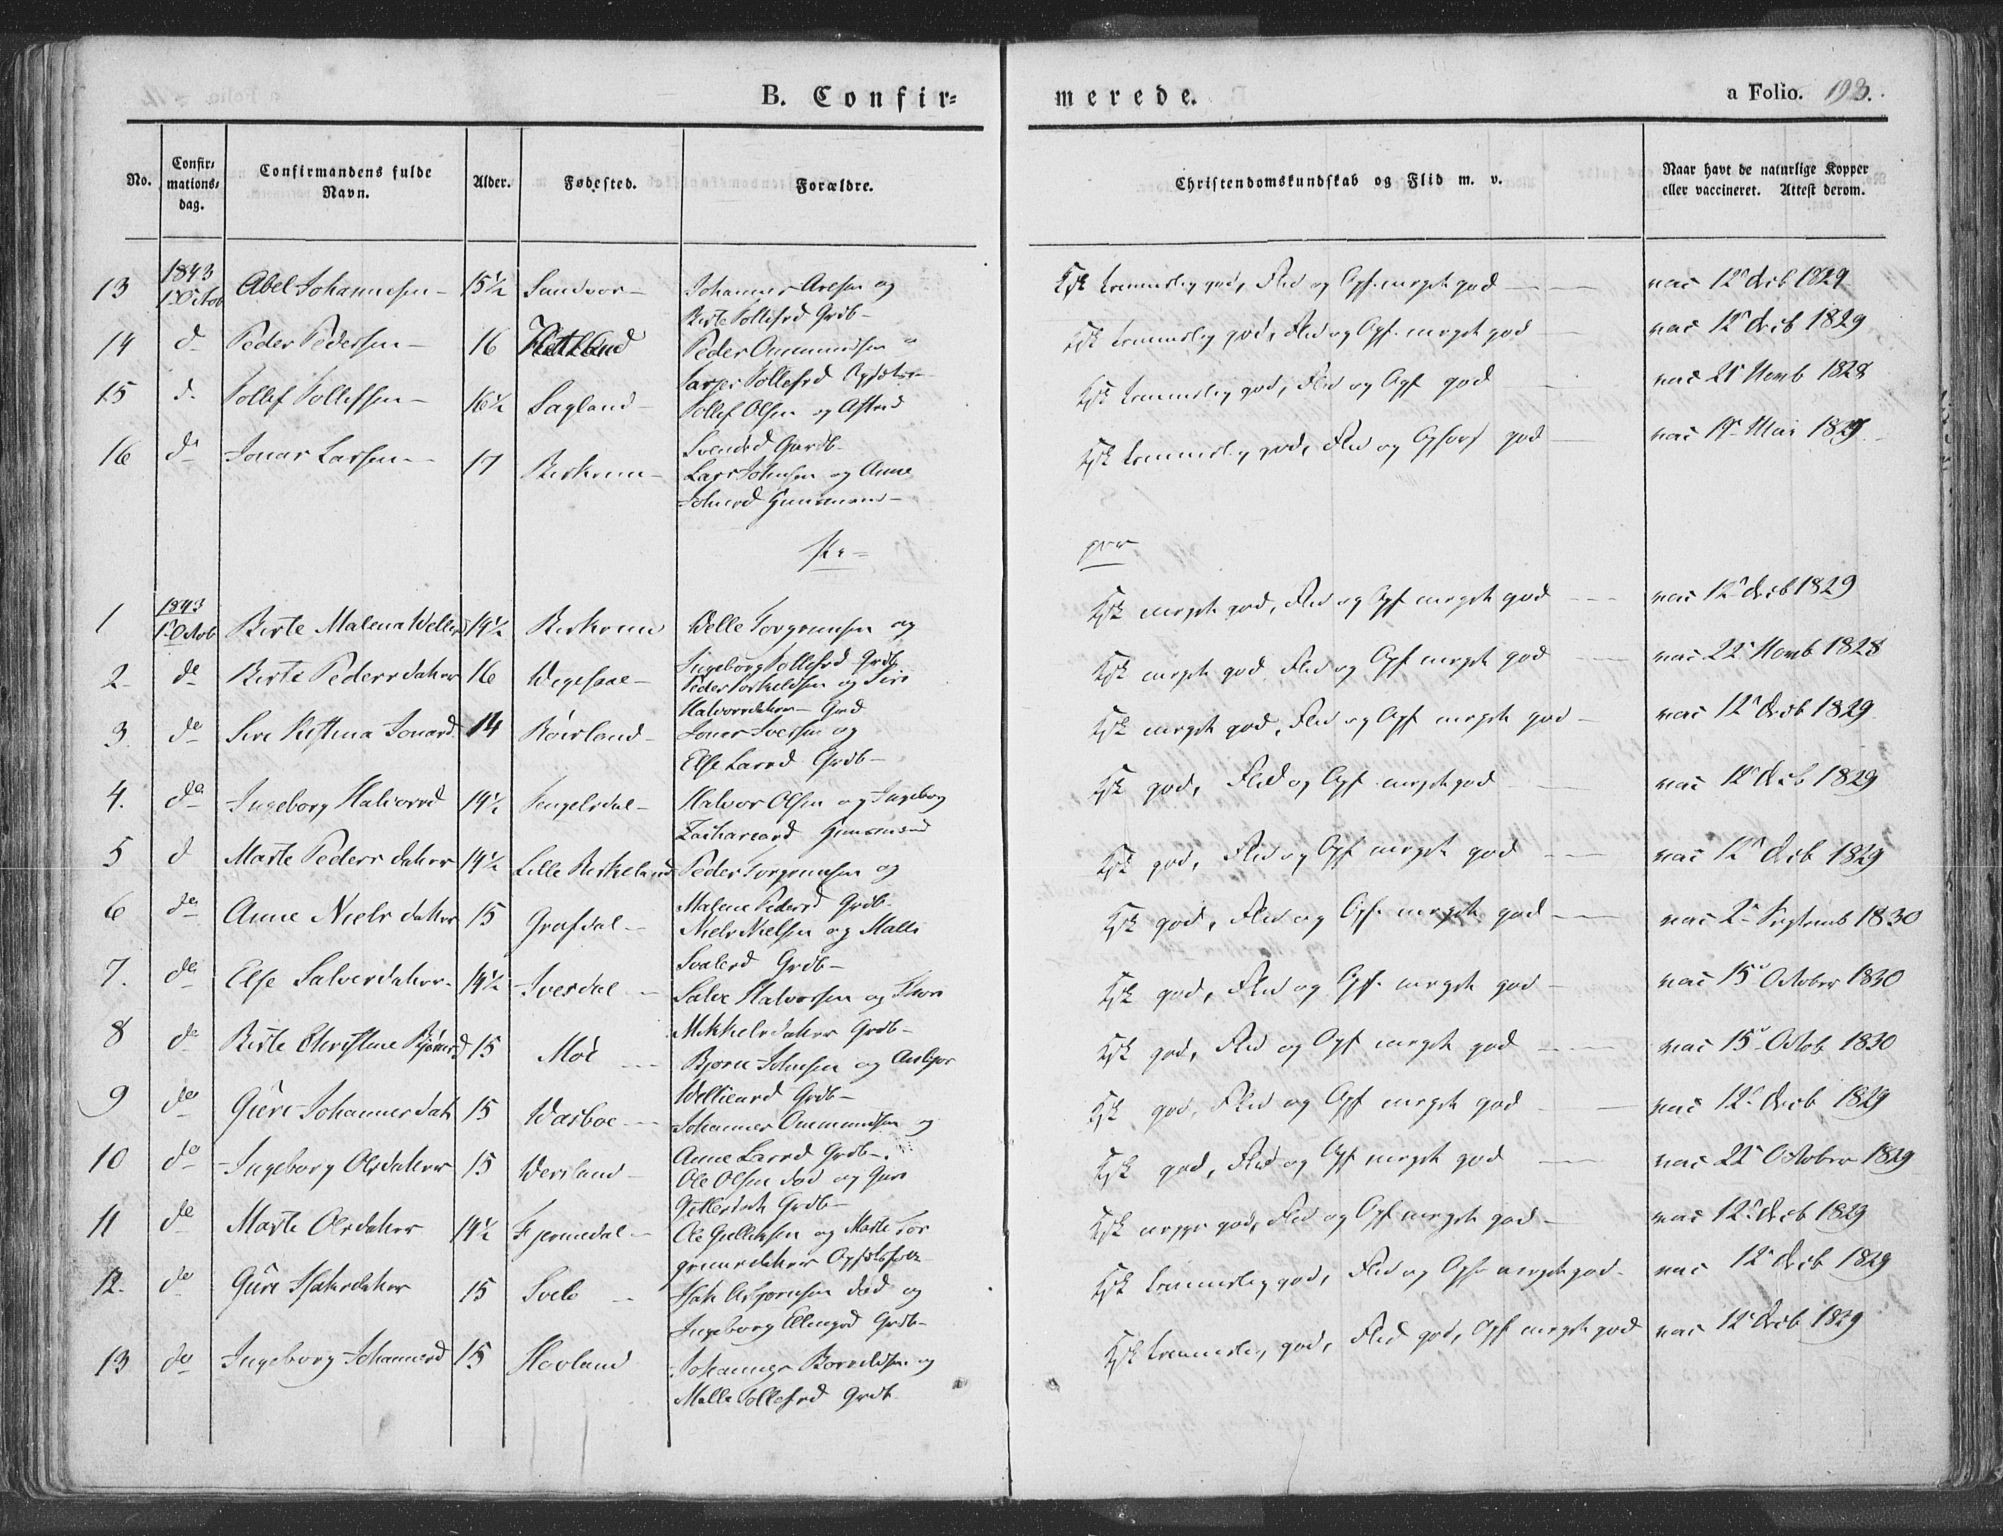 B. Confir=
merede.
a Folio. 193.
No.
Confir=
mations=
dag.
Confirmandens fulde
Navn.
Alder.
Fødested.
Forældre.
Christendomskundskab og Flid m. v.
Naar havt de naturlige Kopper
eller vaccineret. Attest derom.
1843
13 1 Octob Abel Johannesen 15½ Sandvor Johannes Aresen og
Birte Tollefsd Grdb
Kjsk temmelig god, Flid og Opf. meget god vac 12 Decb 1829
14 d Peder Pedersen 16 Hetland Peder Ommundsen
Kjsk temmelig god, Flid og Opf. meget god vac 12 Decb 1829
15 d Tollef Tollefsen 16½ Sagland Tollef Olsen og Astred
Svensd Gaardb
Kjsk temmelig god, Flid og Opf god vac 21 Novb 1828
16 do Jonas Larsen 17 Birkrem Lars Johnsen og Anne
Johnsd Huusmand
Kjsk temmelig god, Flid og Opførs god vac 19 Mai 1829
1843
1 1 Octob Birte Malena Wellesd 14½ Birkrem Welle Torgrimsen og
Ingeborg Tollefsd Grdb
Kjsk meget god, Flid og Opf meget god vac 12 Decb 1829
2 do Birte Pedersdater 16 Wegesaae Peder Torkildsen og Siri
Halvorsdater Grd
Kjsk meget god Flid og Opf meget god vac 22 Novb 1828
3 do Sire Kistina Jonasd 14 Røisland Jonas Iversen og
Else Larsd Grdb
Kjsk meget god, Flid og Opf meget god vac 12 Decb 1829
4. do Ingeborg Halvorsd 14½ Tengelsdal Halvor Olsen og Ingeborg
Zachariasd Huusmænd
Kjsk god, Flid og Opf meget god vac 12 Decb 1829
5 d Marte Peders dater 14½ Lille Birkeland Peder Torgrimsen og
Malene Pedersd Grdb
Kjsk god, Flid og Opf meget god vac 12 Decb 1829
6 do Anne Niels dater 15 Grafdal Niels Nielsen og Malli
Svalesd Grdb
Kjsk god, Flid og Opf meget god vac 2 Septemb 1830
7. do Else Salvesdater 14½ Ivesdal Salve Halvorsen og Thore
Mikkelsdater Grdb
Kjsk god, Flid og Opf meget god vac 15 October 1830
8 do Birte Christine Bjørnsd 15 Moi Bjørn Johnsen og Asbjør
Grdb
Kjsk god, Flid og Opf meget god vac 15 Octob 1830
9 do Guri Johannesdat 15 Wasboe Johannes Ommundsen og
Anne Larsd Grdb
Kjsk god, Flid og Opf meget god vac 12 Decb 1829
10 do Ingeborg Olsdater 15 Wersland Ole Olsen død og Guri
Grdb
Kjsk god, Flid og Opf meget god vac 22 October 1829
11 do Marte Olsdater 14½ Fjermedal Ole Gulliksen og Marte Tor
grimsdater Opsidsfolk
Kjsk meget god, Flid og Opf meget god vac 12 Decb 1829
12. do Guri Isaksdater 15 Svele Isak Asbjørnsen død og
Ingeborg Elingsd Grdb
Kjsk temmelig god, Flid og Opf meget god vac 12 Decb 1829
13 do Ingeborg Johannesd 15 Hovland Johannes Borrildsen og
Malle Tollefsd Grdb
Kjsk temmelig god, Flid god, Opf meget god vac 12 Decb 1829